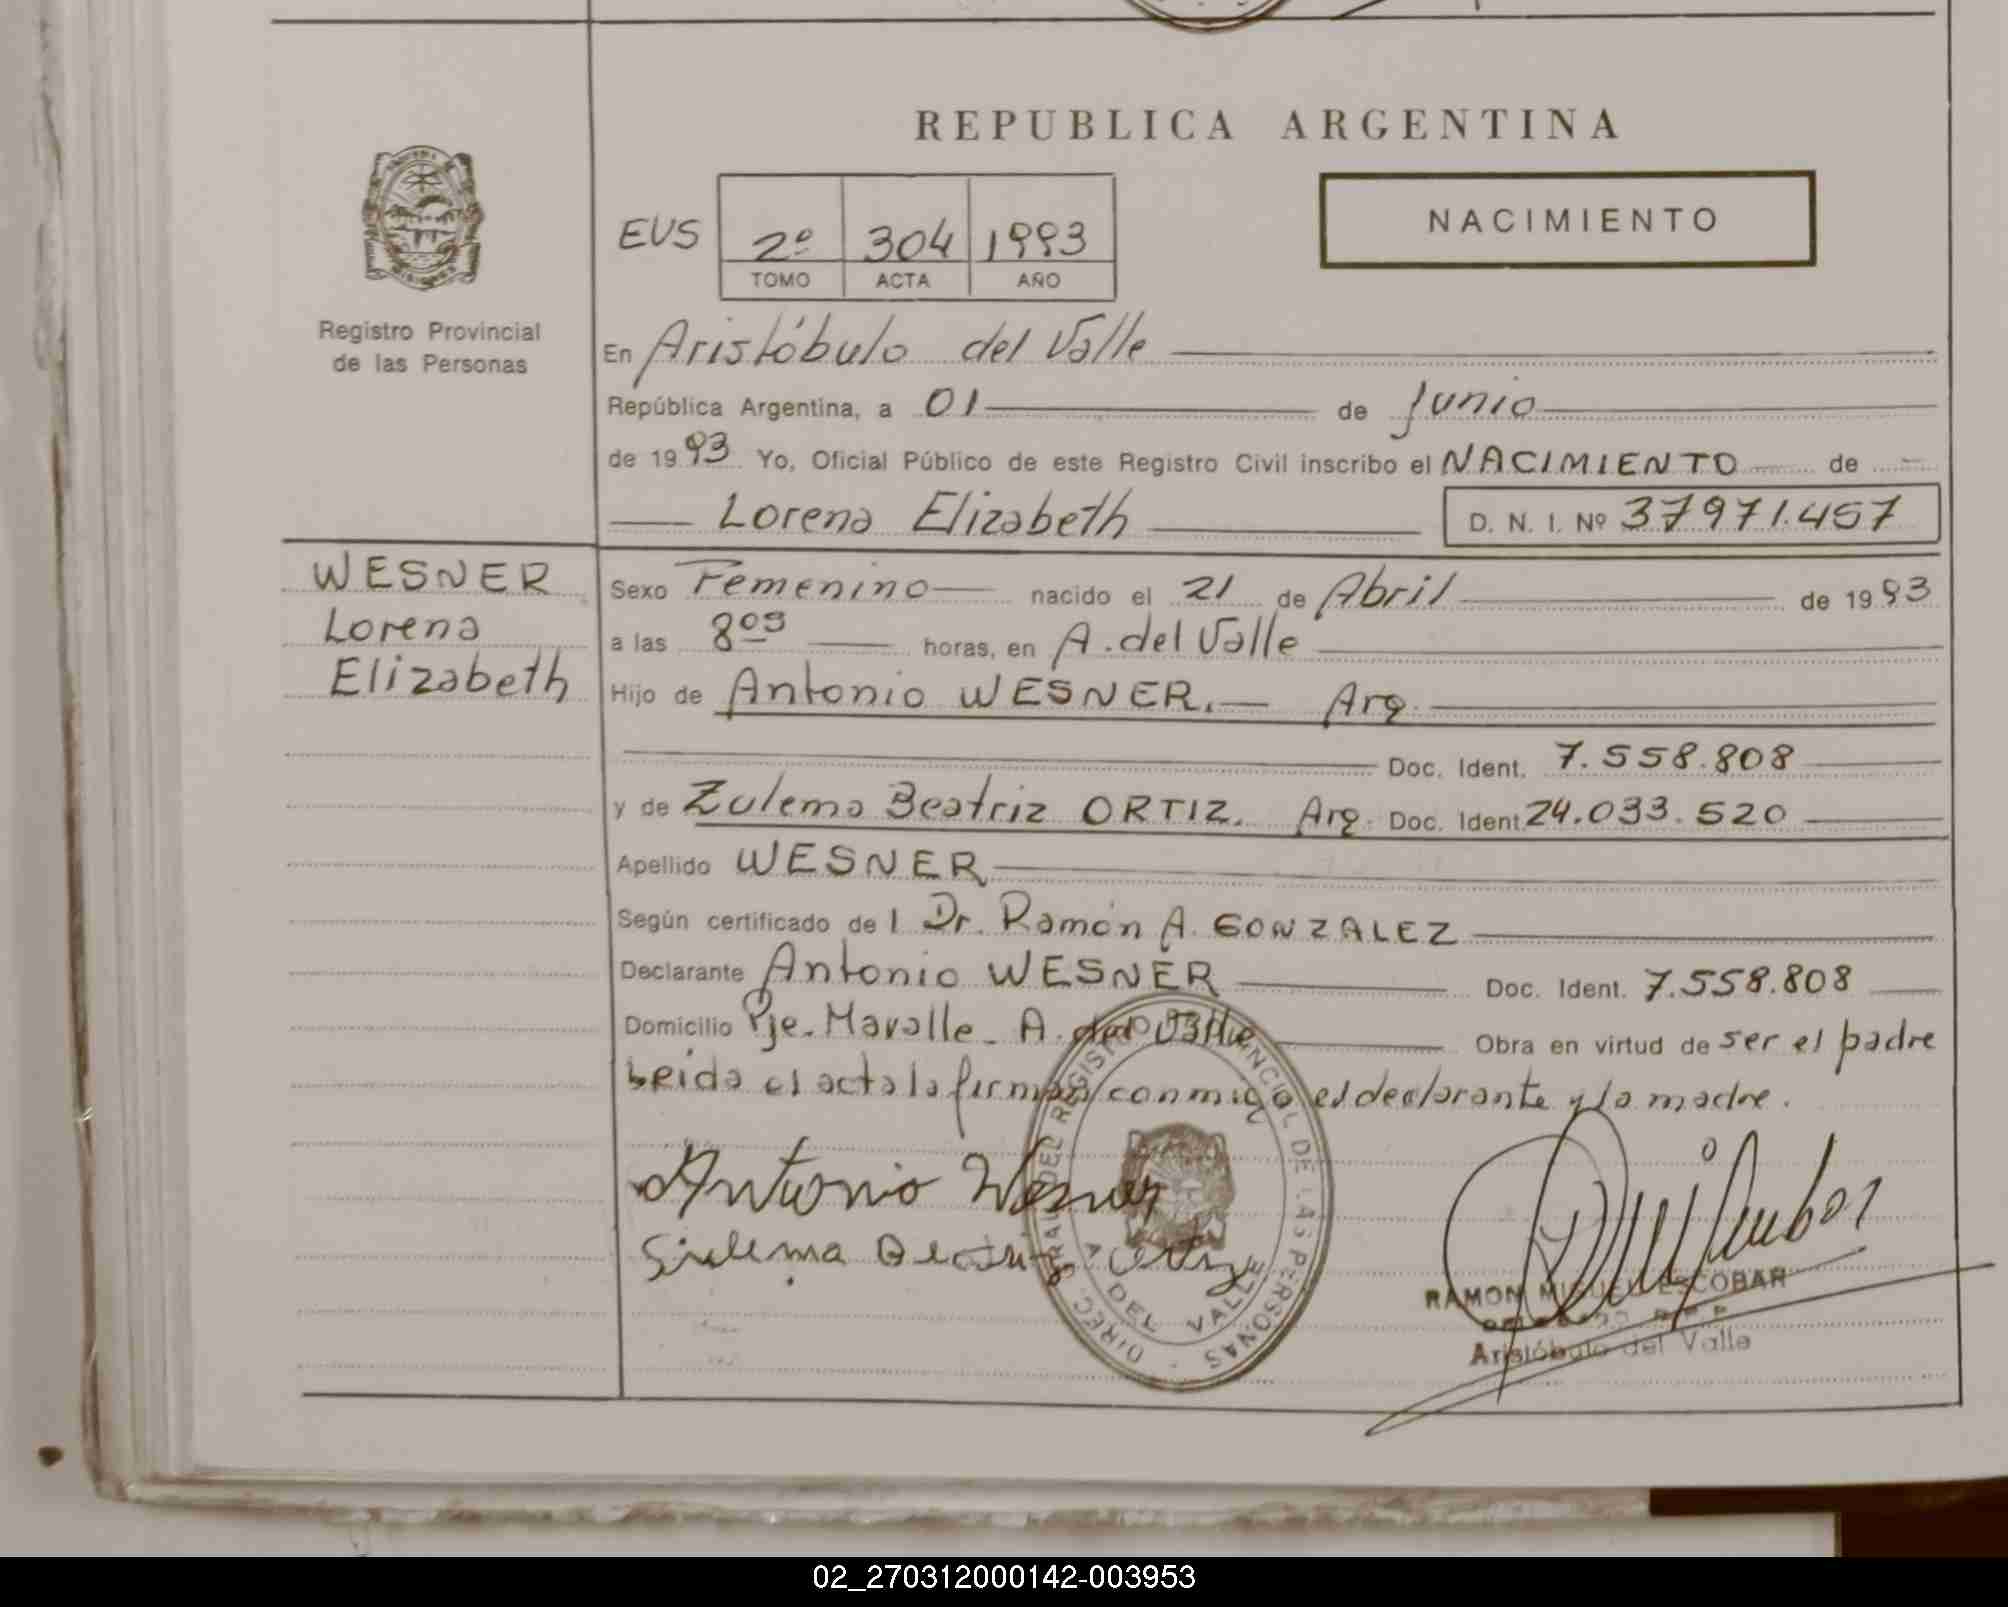 REPUBLICA ARGENTINA
NACIMIENTO
EUS 2º 304 1993
TOMO ACTA AÑO
Registro Provincial
de las Personas
En Aristóbulo del Valle
República Argentina, a 01 de Junio
de 1993 Yo, Oficial Público de este Registro Civil inscribo el NACIMIENTO de
Lorena Elizabeth D. N. I. Nº 37971.457
WESNER
Lorena
Elizabeth
Sexo Femenino nacido el 21 de Abril de 1993
a las 8 horas, en A. del Valle
Hijo de Antonio WESNER. Arg.
Doc. Ident. 7.558.808
y de Zulema Beatriz ORTIZ. Arg. Doc. Ident. 24.033.520
Apellido WESNER
Según certificado del Dr. Ramón A. GONZALEZ
Declarante Antonio WESNER Doc. Ident. 7.558.808
Domicilio Pje. Mavalle - A. del Valle Obra en virtud de ser el padre
Leida el acta la firman conmigo el declarante y la madre.
Antonio Wesner
RAMON MIGUEL ESCOBAR
Aristóbulo del Valle
DIREC. GRAL. DEL REGISTRO PROVINCIAL DE LAS PERSONAS
A. DEL VALLE
02_270312000142-003953